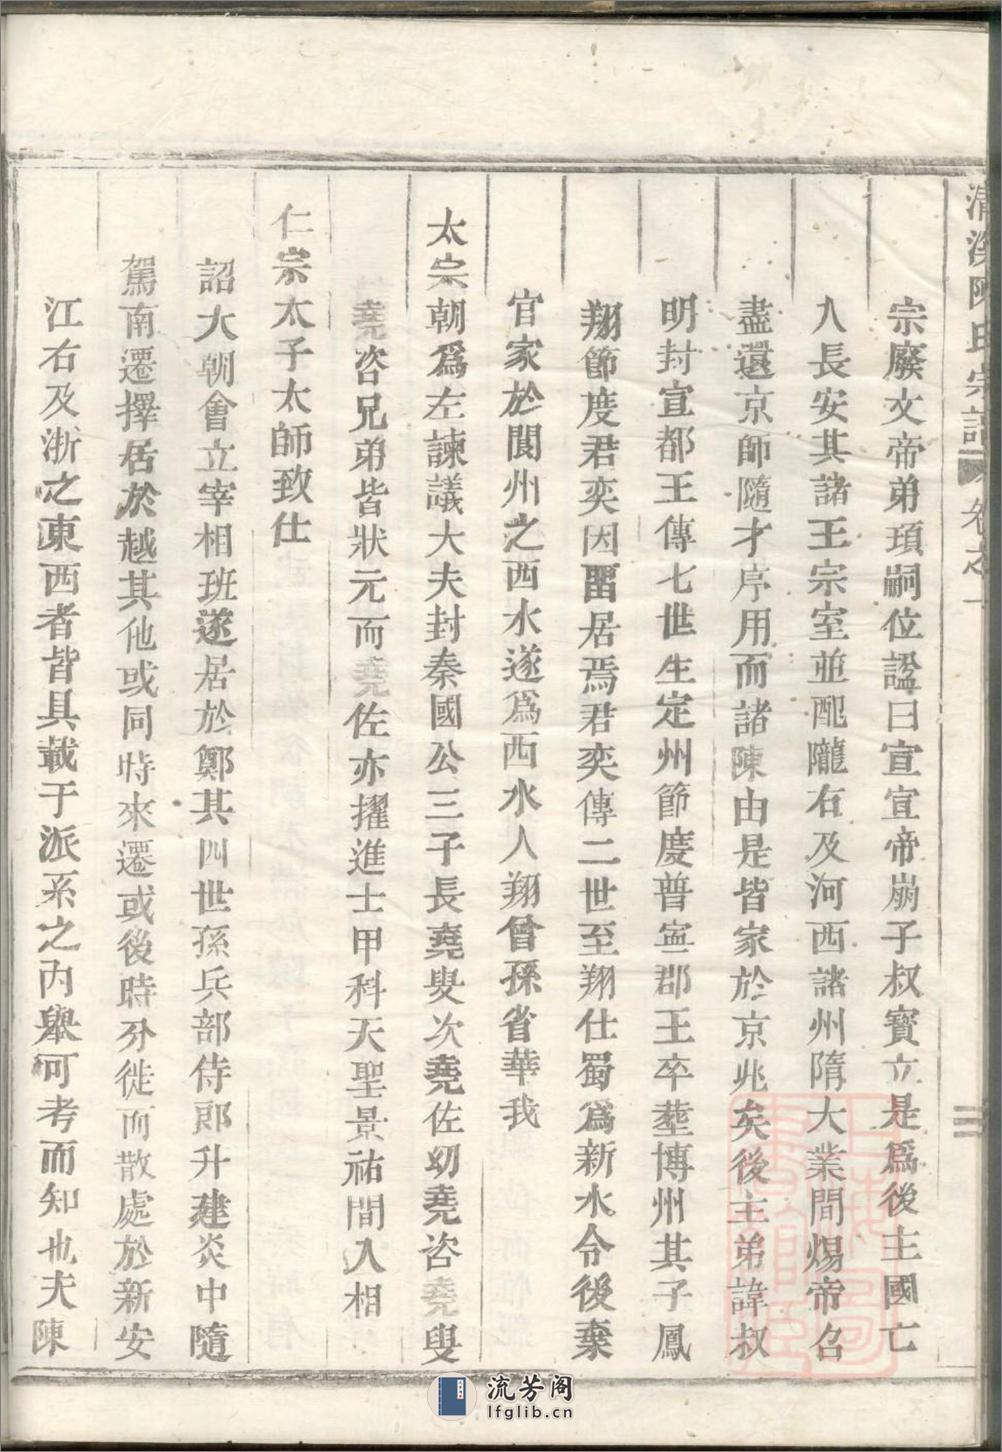 清溪陳氏宗譜 卷之一
宗廢文帝弟頊嗣位諡曰宣宣帝崩子叔寶立是爲後主國亡
入長安其諸王宗室並配隴右及河西諸州隋大業間煬帝召
盡還京師隨才序用而諸陳由是皆家於京兆矣後主弟諱叔
明封宣都王傳七世生定州節度普寧郡王卒塟博州其子鳳
翔節度君奕因畱居焉君奕傳二世至翔仕蜀爲新水令後棄
官家於閬州之西水遂爲西水人翔曾孫省華我
太宗朝爲左諫議大夫封秦國公三子長堯叟次堯佐幼堯咨堯叟
堯咨兄弟皆狀元而堯佐亦擢進士甲科天聖景祐間入相
仁宗太子太師致仕
詔大朝會立宰相班遂居於鄭其四世孫兵部侍郎升建炎中隨
駕南遷擇居於越其他或同時來遷或後時分徙而散處於新安
江右及浙之東西者皆具載于派系之內舉可考而知也夫陳
流芳阁
lfglib.cn